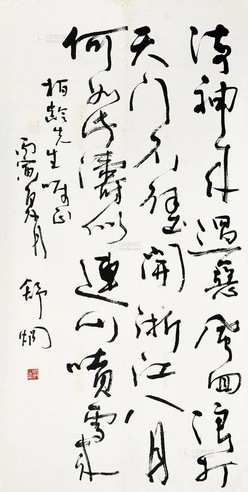 海神来過惡風回浪打
天門石壁開浙江八月
何如此濤似連山噴雪来
柏齡先生嘱正
丙寅夏月
舒炯